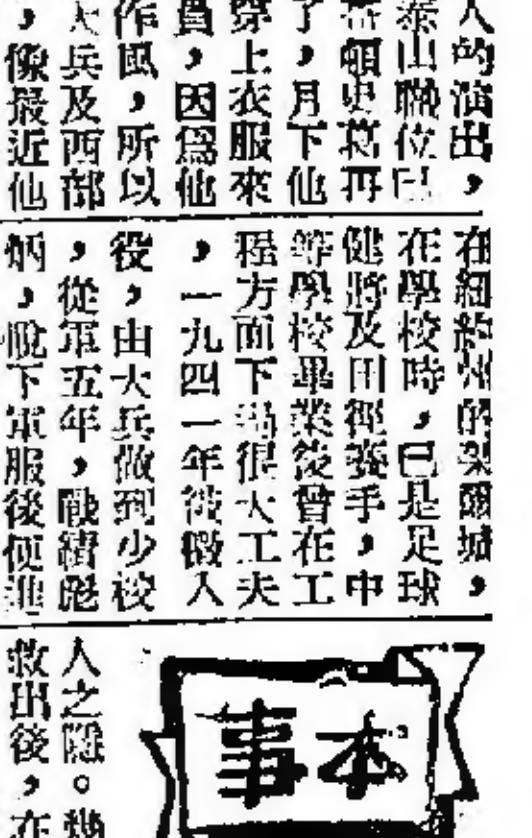 人的演出，
泰山職位已
格頓史葛再
了，月下他
穿上衣服來
員，因爲他
作風，所以
大兵及西部
，像最近他
在紐約州的梨爾城，
在學校時，已是足球
健將及田徑賽手，中
等學校畢業後曾在工
程方面下過很大工夫
，一九四一年後徵入
役，由大兵做到少校
，從軍五年，戰績彪
炳，脫下軍服後便進
本事
人之隱。幾
救出後，在